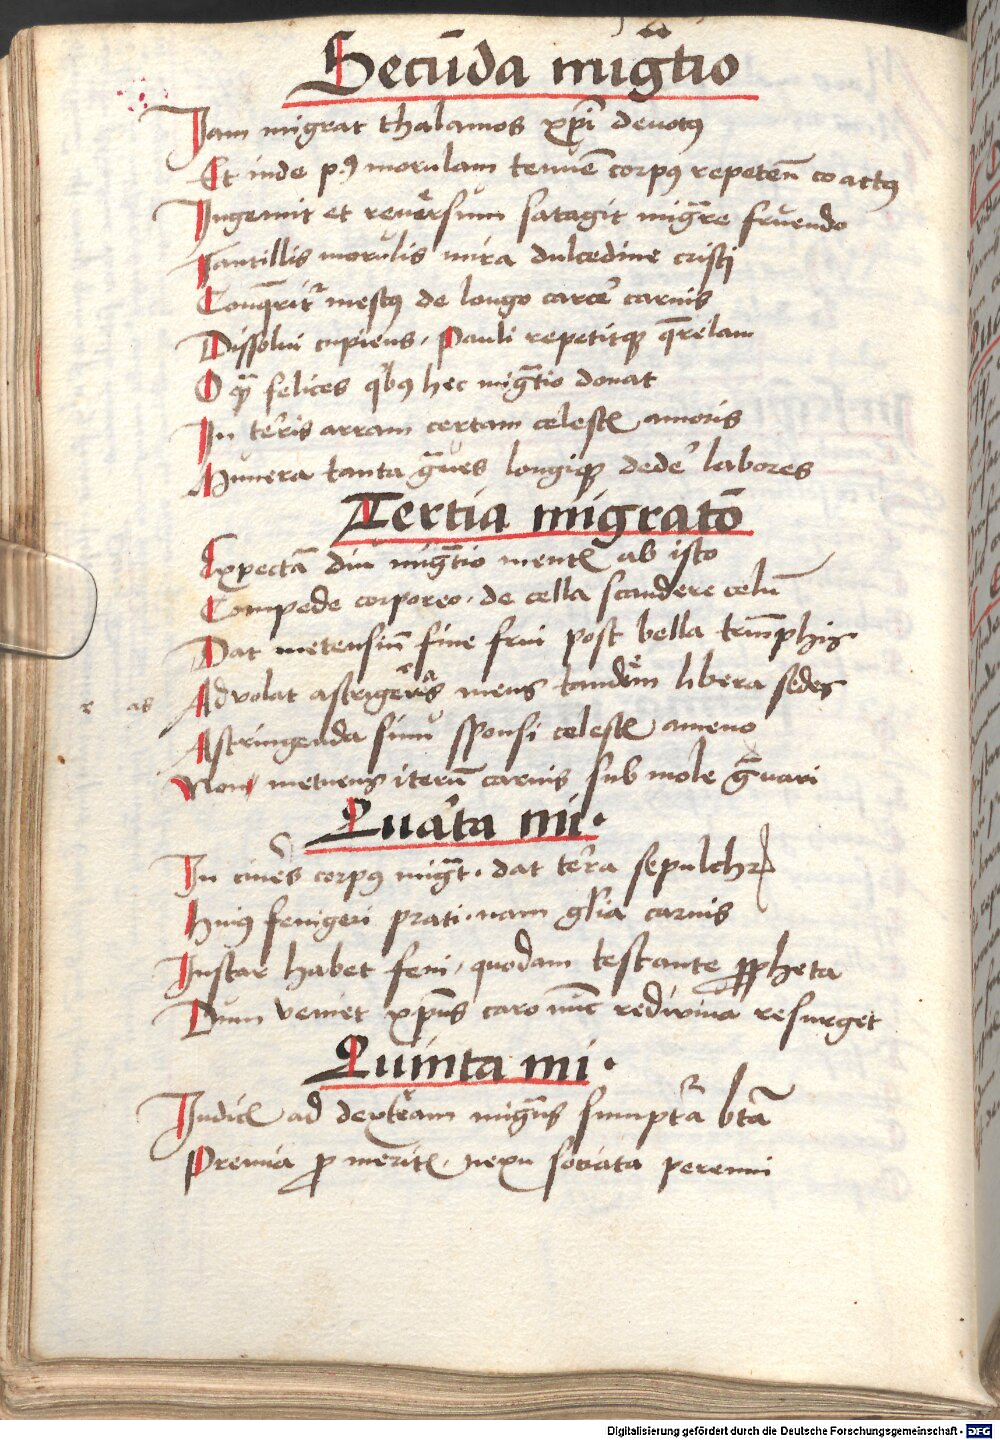 Secūda migr̄tio
Iam migrat thalamos xp̄i deuotꝰ
Et inde pꝰ morulam tenuē corpꝰ repetēn coactꝰ
Ingemit et reuersum satagit migr̄re fruendo
Tantillis morulis mira dulcedine cristi
Conq̄ritr mestꝰ de longo carcē carnis
Dissolui cupiens, Pauli repetitqꝫ q̄relam
O felices qͥbꝰ hec migr̄tio donat
In teris arram certam celestꝭ amoris
Munera tanta gr̄ues longiqꝫ dedē labores
Tertia migratō
Expectā diu migr̄tio mentꝭ ab isto
Compede corporeo. de cella scandere celū
Dat metensiū fine frui post bella triūphis
r as Aduolat astrigeris mens tandem libera sedes
Astringenda sinu sponsi celestꝭ ameno
Non metuens iterū carnis sub mole gr̄uari
Quarta mi.
In cineˢ corpꝰ migr̄t. dat terra sepulchrꝫ
Huiꝰ fenigeri prati. nam gl̄ia carnis
Instar habet feni, quodam testante ꝓpheta
Dum veniet xp̄us caro nūc rediuiua resurget
Quinta mi.
Iudicꝭ ad dextram migr̄ns sumptͬa btā
Premia ꝓ meritꝭ, nexu sociata perenni
Digitalisierung gefördert durch die Deutsche Forschungsgemeinschaft - DFG